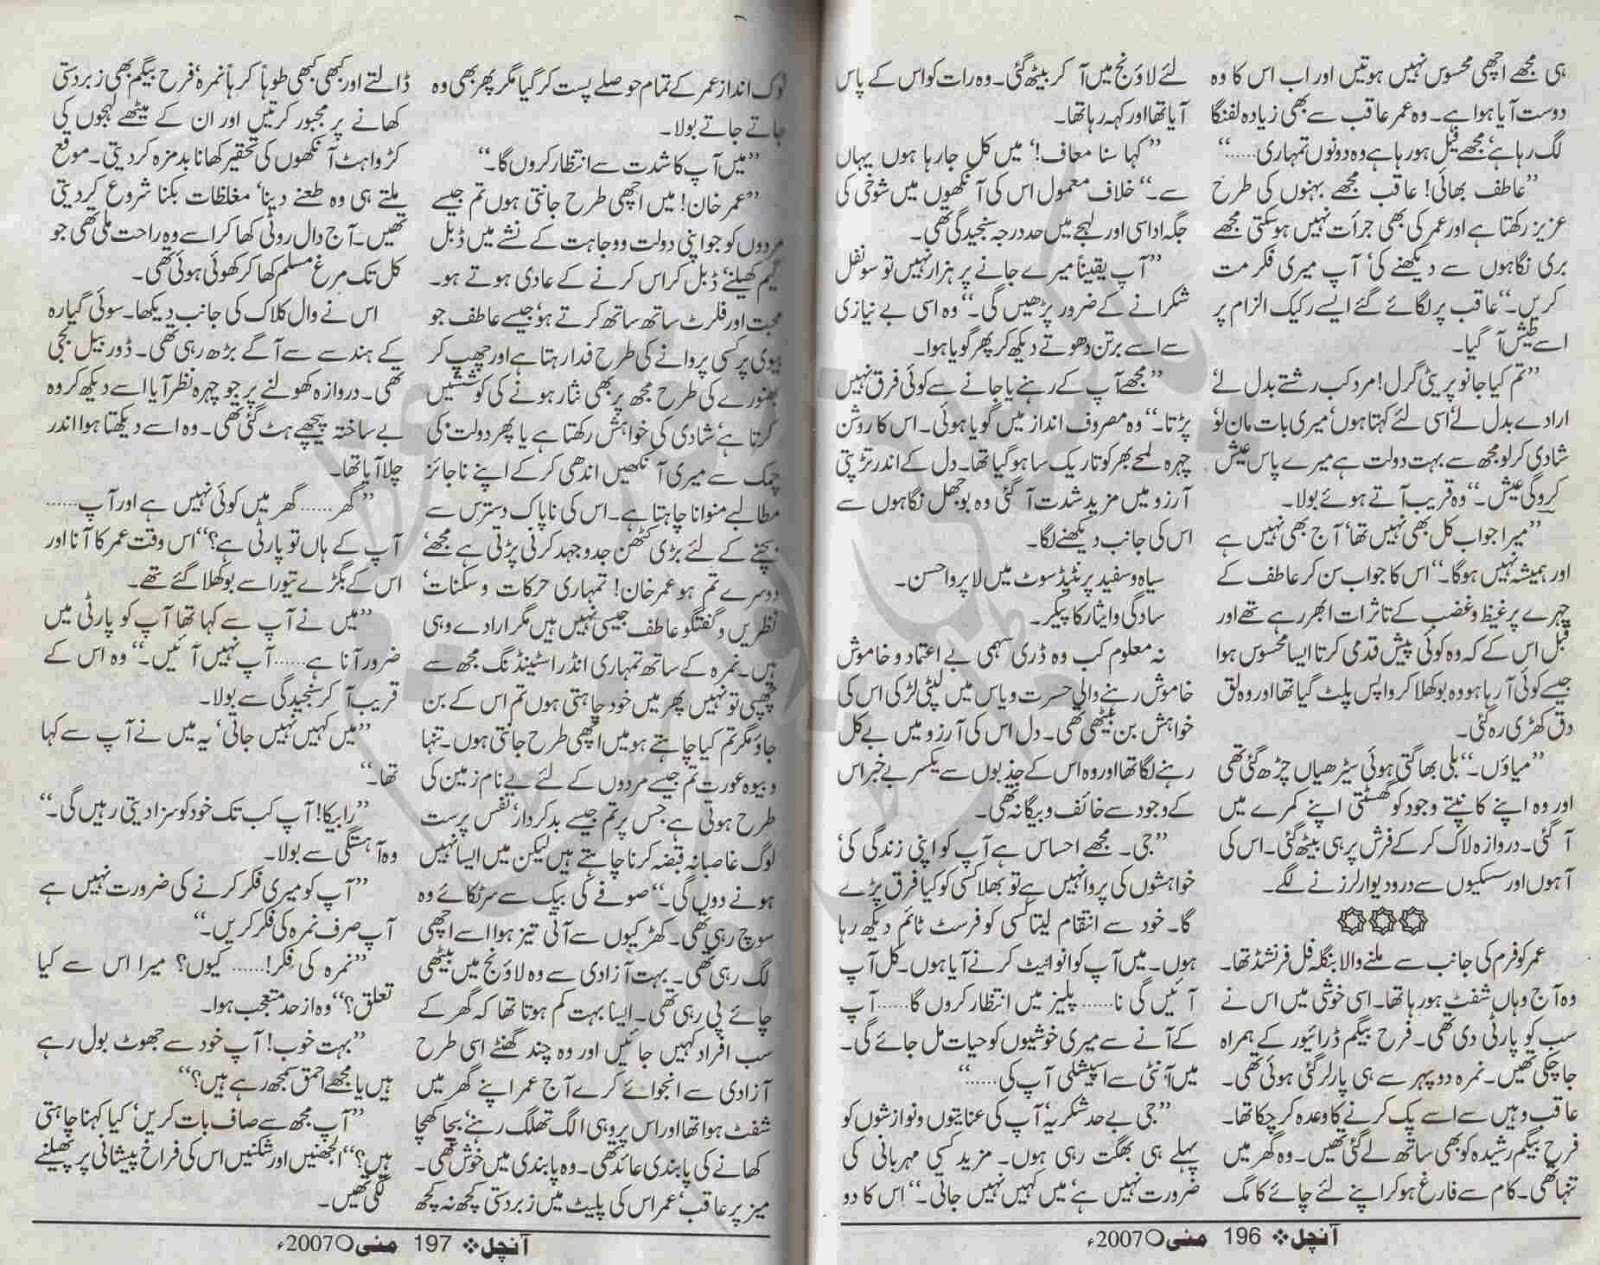 ہی مجھے اچھی محسوس نہیں ہوتیں اور اب اس کا وہ
دوست آیا ہوا ہے۔ وہ عمر عاقب سے بھی زیادہ لفنگا
لگ رہا ہے‘ مجھے فیل ہو رہا ہے وہ دونوں تمہاری......“
”عاطف بھائی! عاقب مجھے بہنوں کی طرح
عزیز رکھتا ہے اور عمر کی بھی جرأت نہیں ہوسکتی مجھے
بری نگاہوں سے دیکھنے کی‘ آپ میری فکر مت
کریں۔“ عاقب پر لگائے گئے ایسے رکیک الزام پر
اسے طیش آ گیا۔
”تم کیا جانو پریٹی گرل! مرد کب رشتے بدل لے‘
ارادے بدل لے‘ اسی لئے کہتا ہوں‘ میری بات مان لو‘
شادی کر لو مجھ سے بہت دولت ہے میرے پاس عیش
کرو گی عیش۔“ وہ قریب آتے ہوئے بولا۔
”میرا جواب کل بھی نہیں تھا‘ آج بھی نہیں ہے
اور ہمیشہ نہیں ہوگا۔“ اس کا جواب سن کر عاطف کے
چہرے پر غیظ و غضب کے تاثرات ابھر رہے تھے اور
قبل اس کے کہ وہ کوئی پیش قدمی کرتا ایسا محسوس ہوا
جیسے کوئی آ رہا ہو وہ بوکھلا کر واپس پلٹ گیا تھا اور وہ لق
دق کھڑی رہ گئی۔
”میاؤں۔“ بلی بھاگتی ہوئی سیڑھیاں چڑھ گئی تھی
اور وہ اپنے کانپتے وجود کو گھسٹتی اپنے کمرے میں
آ گئی۔ دروازہ لاک کر کے فرش پر ہی بیٹھ گئی۔ اس کی
آہوں اور سسکیوں سے در و دیوار لرزنے لگے۔
عمر کو فرم کی جانب سے ملنے والا بنگلہ فل فرنشڈ تھا۔
وہ آج وہاں شفٹ ہو رہا تھا۔ اسی خوشی میں اس نے
سب کو پارٹی دی تھی۔ فرح بیگم ڈرائیور کے ہمراہ
جا چکی تھیں۔ نمرہ دوپہر سے ہی پارلر گئی ہوئی تھی۔
عاقب وہیں سے اسے پک کرنے کا وعدہ کر چکا تھا۔
فرح بیگم رشیدہ کو بھی ساتھ لے گئی تھیں۔ وہ گھر میں
تنہا تھی۔ کام سے فارغ ہو کر اپنے لئے چائے کا مگ
لئے لاؤنج میں آ کر بیٹھ گئی۔ وہ رات کو اس کے پاس
آیا تھا اور کہہ رہا تھا۔
”کہا سنا معاف!‘ میں کل جا رہا ہوں یہاں
سے۔“ خلاف معمول اس کی آنکھوں میں شوخی کی
جگہ اداسی اور لہجے میں حد درجہ سنجیدگی تھی۔
”آپ یقیناً میرے جانے پر ہزار نہیں تو سو نفل
شکرانے کے ضرور پڑھیں گی۔“ وہ اسی بے نیازی
سے اسے برتن دھوتے دیکھ کر پھر گویا ہوا۔
”مجھے آپ کے رہنے یا جانے سے کوئی فرق نہیں
پڑتا۔“ وہ مصروف انداز میں گویا ہوئی۔ اس کا روشن
چہرہ لمحے بھر کو تاریک سا ہو گیا تھا۔ دل کے اندر تڑپتی
آرزو میں مزید شدت آ گئی وہ بوجھل نگاہوں سے
اس کی جانب دیکھنے لگا۔
سیاہ و سفید پرنٹیڈ سوٹ میں لاپرواحسن۔
سادگی و ایثار کا پیکر۔
نہ معلوم کب وہ ڈری سہمی بے اعتماد و خاموش
خاموش رہنے والی حسرت و یاس میں لپٹی لڑکی اس کی
خواہش بن بیٹھی تھی۔ دل اس کی آرزو میں بے کل
رہنے لگا تھا اور وہ اس کے جذبوں سے یکسر بے خبر اس
کے وجود سے خائف و بیگانہ تھی۔
”جی۔ مجھے احساس ہے آپ کو اپنی زندگی کی‘
خواہشوں کی پروا نہیں ہے تو بھلا کسی کو کیا فرق پڑے
گا۔ خود سے انتقام لیتا کسی کو فرسٹ ٹائم دیکھ رہا
ہوں۔ میں آپ کو انوائیٹ کرنے آیا ہوں۔ کل آپ
آئیں گی نا...... پلیز میں انتظار کروں گا...... آپ
کے آنے سے میری خوشیوں کو حیات مل جائے گی۔
میں آنٹی سے اسپیشلی آپ کی......“
”جی بے حد شکریہ‘ آپ کی عنایتوں و نوازشوں کو
پہلے ہی بھگت رہی ہوں۔ مزید کسی مہربانی کی
ضرورت نہیں ہے‘ میں کہیں نہیں جاتی۔“ اس کا دو
آنچل 196 مئی 2007ء
ٹوک انداز عمر کے تمام حوصلے پست کر گیا مگر پھر بھی وہ
جاتے جاتے بولا۔
”میں آپ کا شدت سے انتظار کروں گا۔“
”عمر خان! میں اچھی طرح جانتی ہوں تم جیسے
مردوں کو جو اپنی دولت و وجاہت کے نشے میں ڈبل
گیم کھیلنے‘ ڈبل کراس کرنے کے عادی ہوتے ہو۔
محبت اور فلرٹ ساتھ ساتھ کرتے ہو‘ جیسے عاطف جو
بیوی پر کسی پروانے کی طرح فدا رہتا ہے اور چھپ کر
بھنورے کی طرح مجھ پر بھی نثار ہونے کی کوششیں
کرتا ہے‘ شادی کی خواہش رکھتا ہے یا پھر دولت کی
چمک سے میری آنکھیں اندھی کر کے اپنے ناجائز
مطالبے منوانا چاہتا ہے۔ اس کی ناپاک دسترس سے
بچنے کے لئے بڑی کٹھن جدوجہد کرنی پڑتی ہے مجھے‘
دوسرے تم ہو عمر خان! تمہاری حرکات و سکنات‘
نظریں و گفتگو عاطف جیسی نہیں ہیں مگر ارادے وہی
ہیں۔ نمرہ کے ساتھ تمہاری انڈر اسٹینڈنگ مجھ سے
چھپی تو نہیں پھر میں خود چاہتی ہوں تم اس کے بن
جاؤ مگر تم کیا چاہتے ہو میں اچھی طرح جانتی ہوں۔ تنہا
و بیوہ عورت تم جیسے مردوں کے لئے بے نام زمین کی
طرح ہوتی ہے جس پر تم جیسے بدکردار‘ نفس پرست
لوگ غاصبانہ قبضہ کرنا چاہتے ہیں لیکن میں ایسا نہیں
ہونے دوں گی۔“ صوفے کی بیک سے سر ٹکائے وہ
سوچ رہی تھی۔ کھڑکیوں سے آتی تیز ہوا اسے اچھی
لگ رہی تھی۔ بہت آزادی سے وہ لاؤنج میں بیٹھی
چائے پی رہی تھی۔ ایسا بہت کم ہوتا تھا کہ گھر کے
سب افراد کہیں جائیں اور وہ چند گھنٹے اسی طرح
آزادی سے انجوائے کرے آج عمر اپنے گھر میں
شفٹ ہوا تھا اور اس پر وہی الگ تھلگ رہنے‘ بچا کھچا
کھانے کی پابندی عائد تھی۔ وہ پابندی میں خوش تھی۔
میز پر عاقب‘ عمر اس کی پلیٹ میں زبردستی کچھ نہ کچھ
ڈالتے اور کبھی کبھی طوہاً کرہاً نمرہ‘ فرح بیگم بھی زبردستی
کھانے پر مجبور کرتیں اور ان کے میٹھے لہجوں کی
کڑواہٹ آنکھوں کی تحقیر کھانا بدمزہ کر دیتی۔ موقع
ملتے ہی وہ طعنے دینا‘ مغلظات بکنا شروع کر دیتی
تھیں۔ آج دال روٹی کھا کر اسے وہ راحت ملی تھی جو
کل تک مرغ مسلم کھا کر کھوئی ہوئی تھی۔
اس نے وال کلاک کی جانب دیکھا۔ سوئی گیارہ
کے ہندسے سے آگے بڑھ رہی تھی۔ ڈور بیل بجی
تھی۔ دروازہ کھولنے پر جو چہرہ نظر آیا اسے دیکھ کر وہ
بے ساختہ پیچھے ہٹ گئی تھی۔ وہ اسے دیکھتا ہوا اندر
چلا آیا تھا۔
”گھر...... گھر میں کوئی نہیں ہے اور آپ......
آپ کے ہاں تو پارٹی ہے؟“ اس وقت عمر کا آنا اور
اس کے بگڑے تیور اسے بوکھلا گئے تھے۔
”میں نے آپ سے کہا تھا آپ کو پارٹی میں
ضرور آنا ہے...... آپ نہیں آئیں۔“ وہ اس کے
قریب آ کر سنجیدگی سے بولا۔
”میں کہیں نہیں جاتی‘ یہ میں نے آپ سے کہا
تھا۔“
”رابیکا! آپ کب تک خود کو سزا دیتی رہیں گی۔“
وہ آہستگی سے بولا۔
”آپ کو میری فکر کرنے کی ضرورت نہیں ہے
آپ صرف نمرہ کی فکر کریں۔“
”نمرہ کی فکر!...... کیوں؟ میرا اس سے کیا
تعلق؟“ وہ از حد متعجب ہوا۔
”بہت خوب! آپ خود سے جھوٹ بول رہے
ہیں یا مجھے احمق سمجھ رہے ہیں؟“
”آپ مجھ سے صاف بات کریں‘ کیا کہنا چاہتی
ہیں؟“ الجھنیں اور شکنیں اس کی فراخ پیشانی پر پھیلنے
لگی تھیں۔
آنچل 197 مئی 2007ء